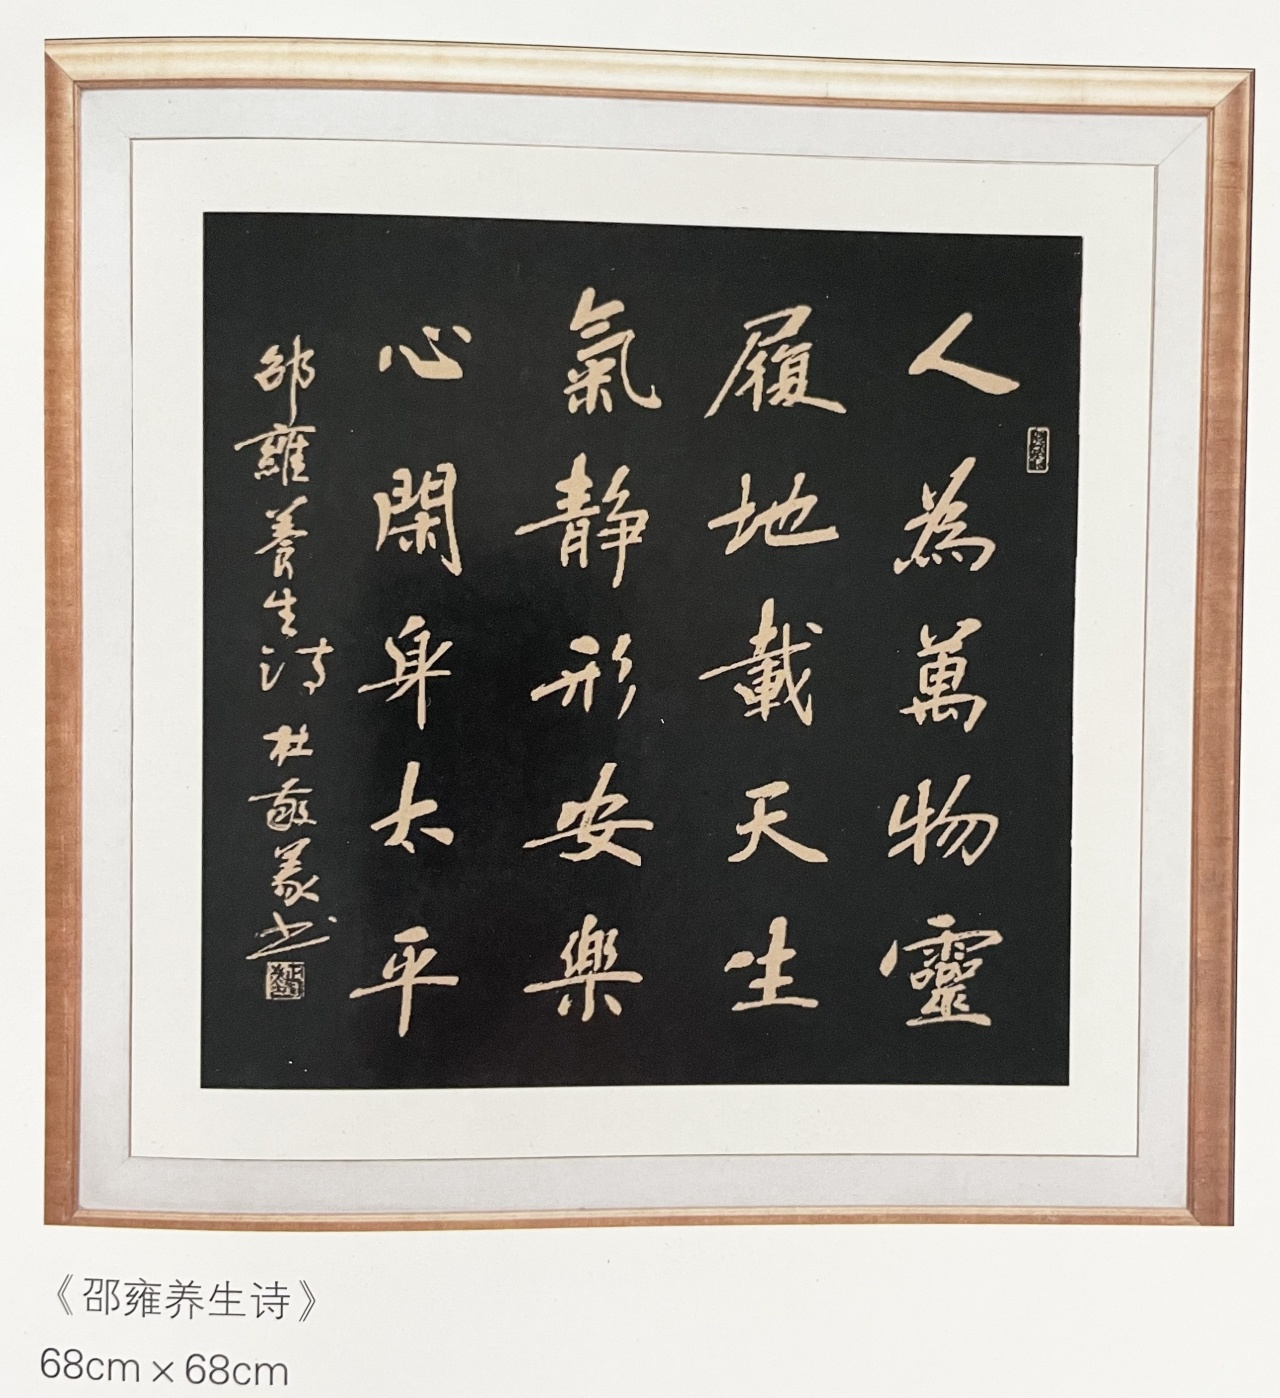 人為萬物靈
履地載天生
氣静形安樂
心閑身太平
邵雍養生詩 杜敬義书
《邵雍养生诗》
68cm×68cm